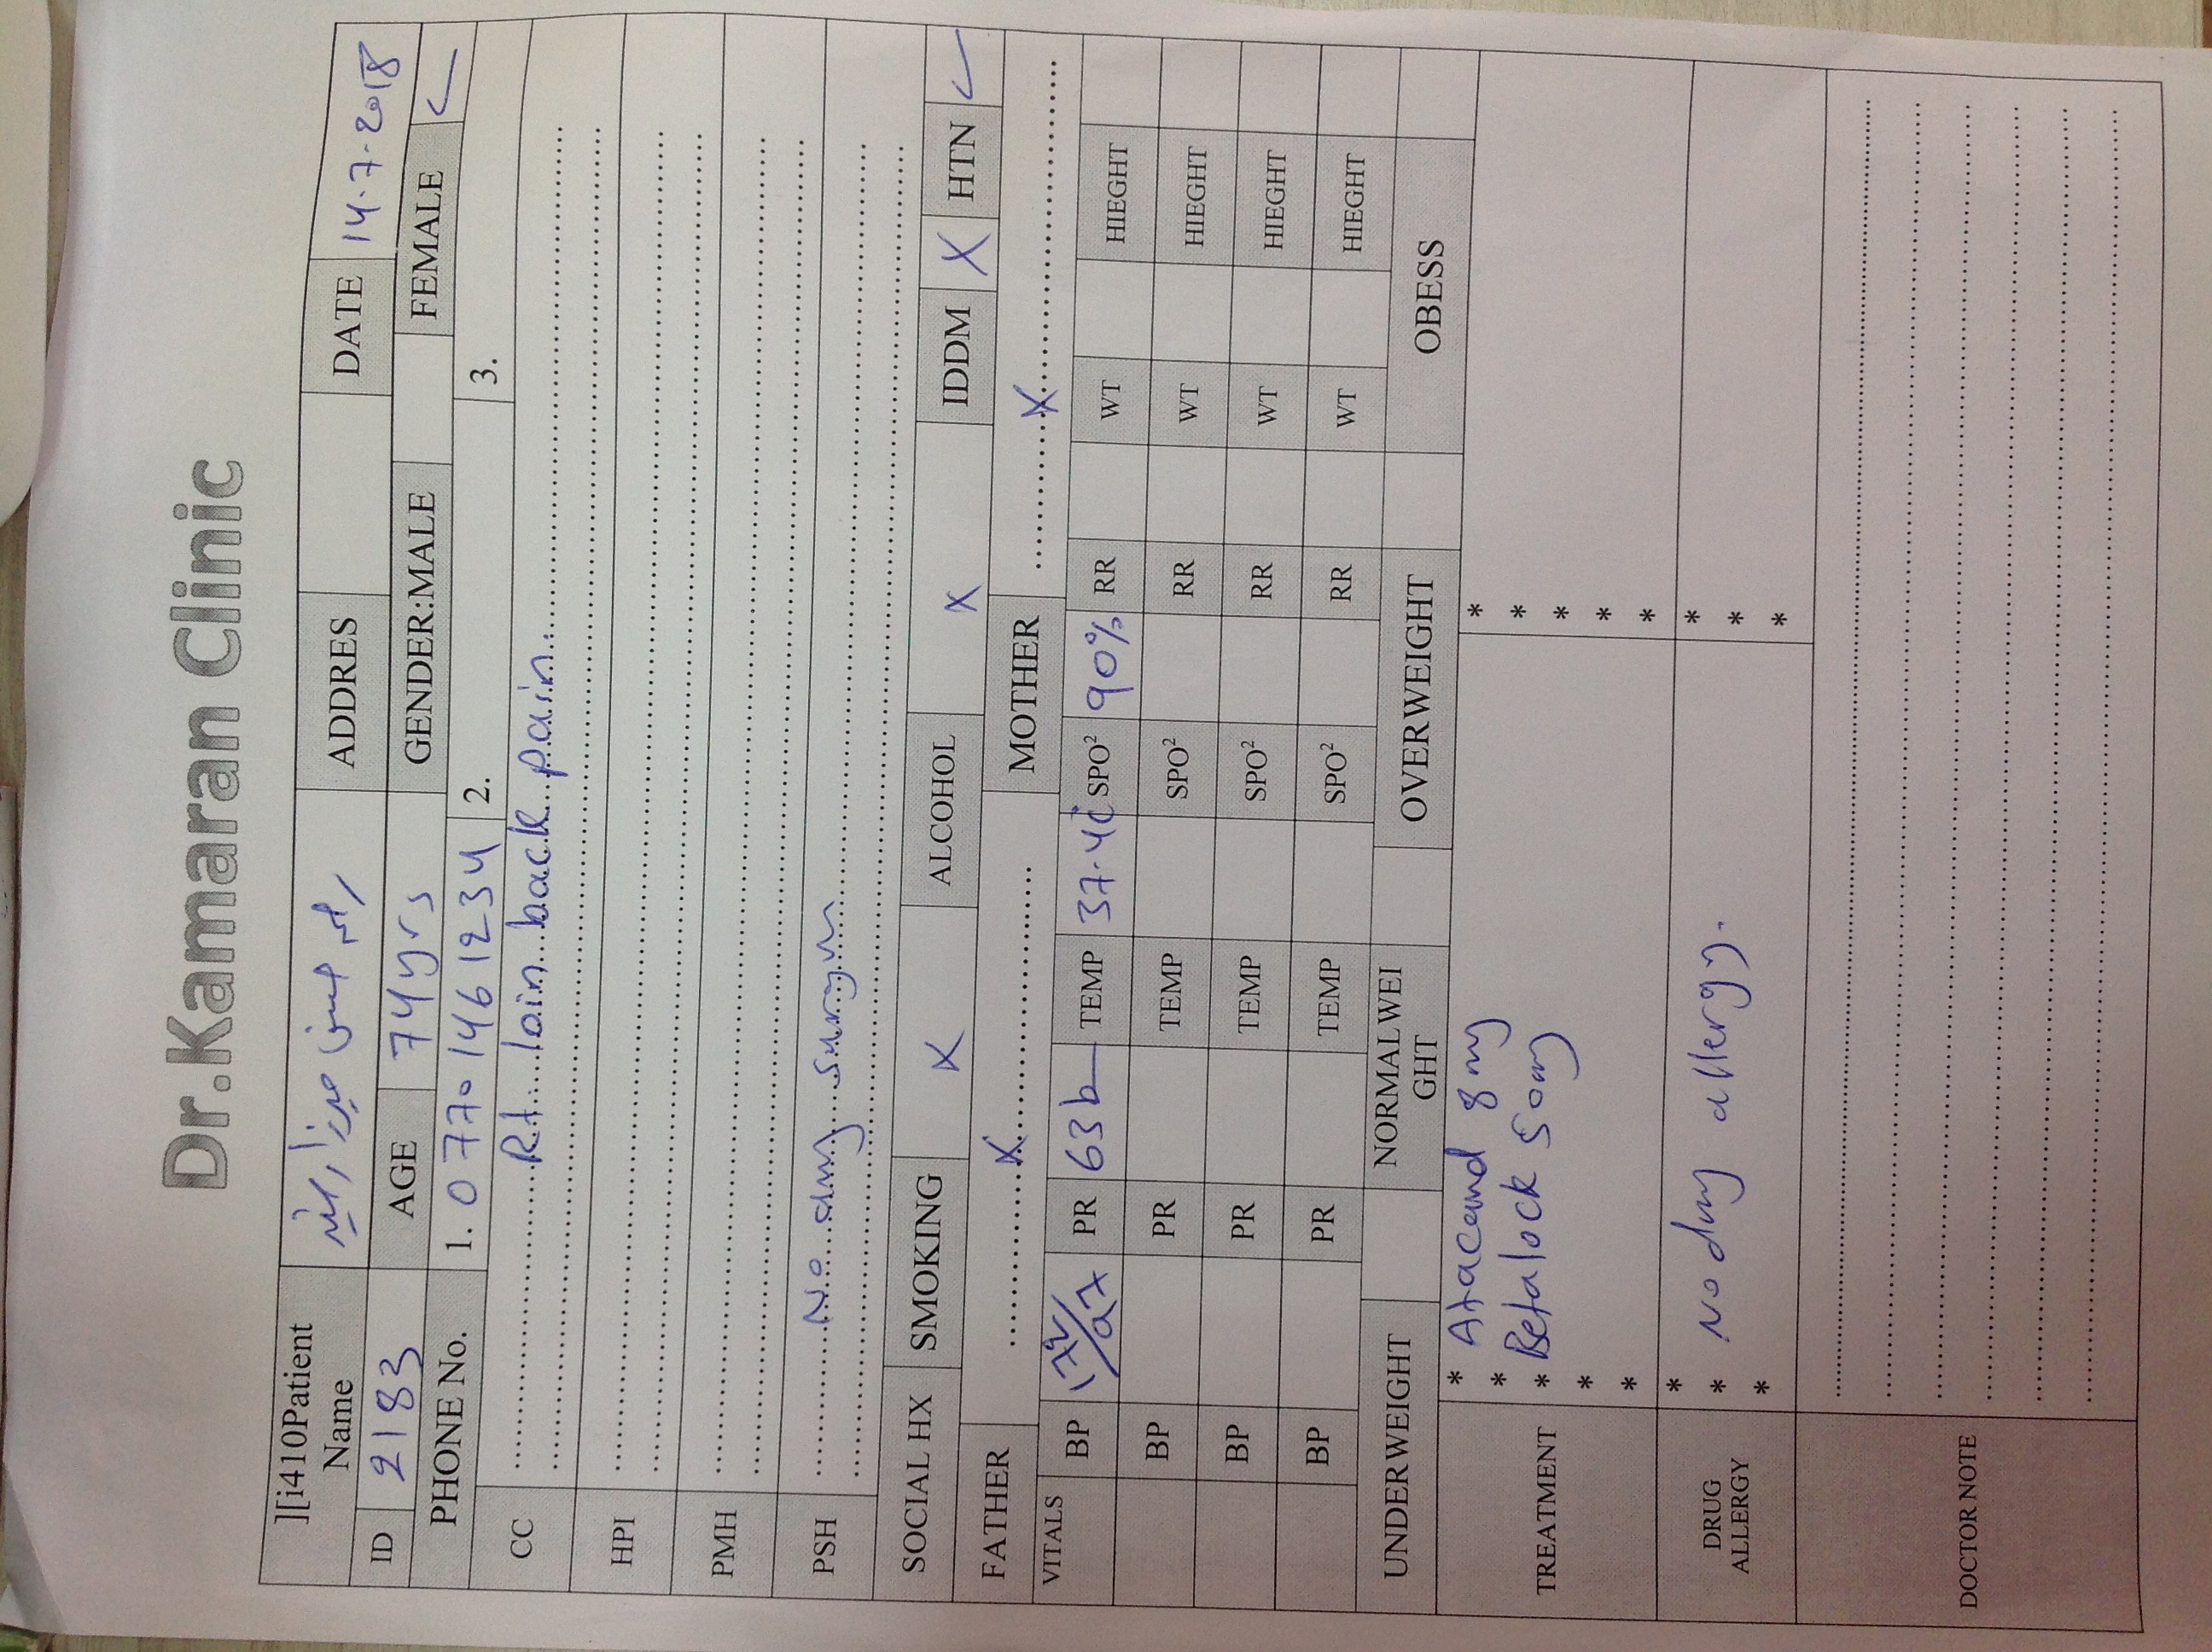 Dr.Kamaran Clinic
][i410Patient Name ADDRES DATE 14.7.2018
ID 2183 AGE 74yrs GENDER:MALE FEMALE ✓
PHONE No. 1. 0770 146 1234 2. 3.
CC Rt loin back pain
HPI
PMH
PSH No any surgury
SOCIAL HX SMOKING X ALCOHOL X IDDM X HTN ✓
FATHER X MOTHER X
VITALS BP PR 63b TEMP 37.4c SPO² 90% RR WT HIEGHT
BP PR TEMP SPO² RR WT HIEGHT
BP PR TEMP SPO² RR WT HIEGHT
BP PR TEMP SPO² RR WT HIEGHT
UNDERWEIGHT NORMALWEI
GHT OVERWEIGHT OBESS
TREATMENT * Atacand 8 mg *
* *
* Betalock 50mg *
* *
* *
DRUG
ALLERGY * *
* No drug allergy. *
* *
DOCTOR NOTE